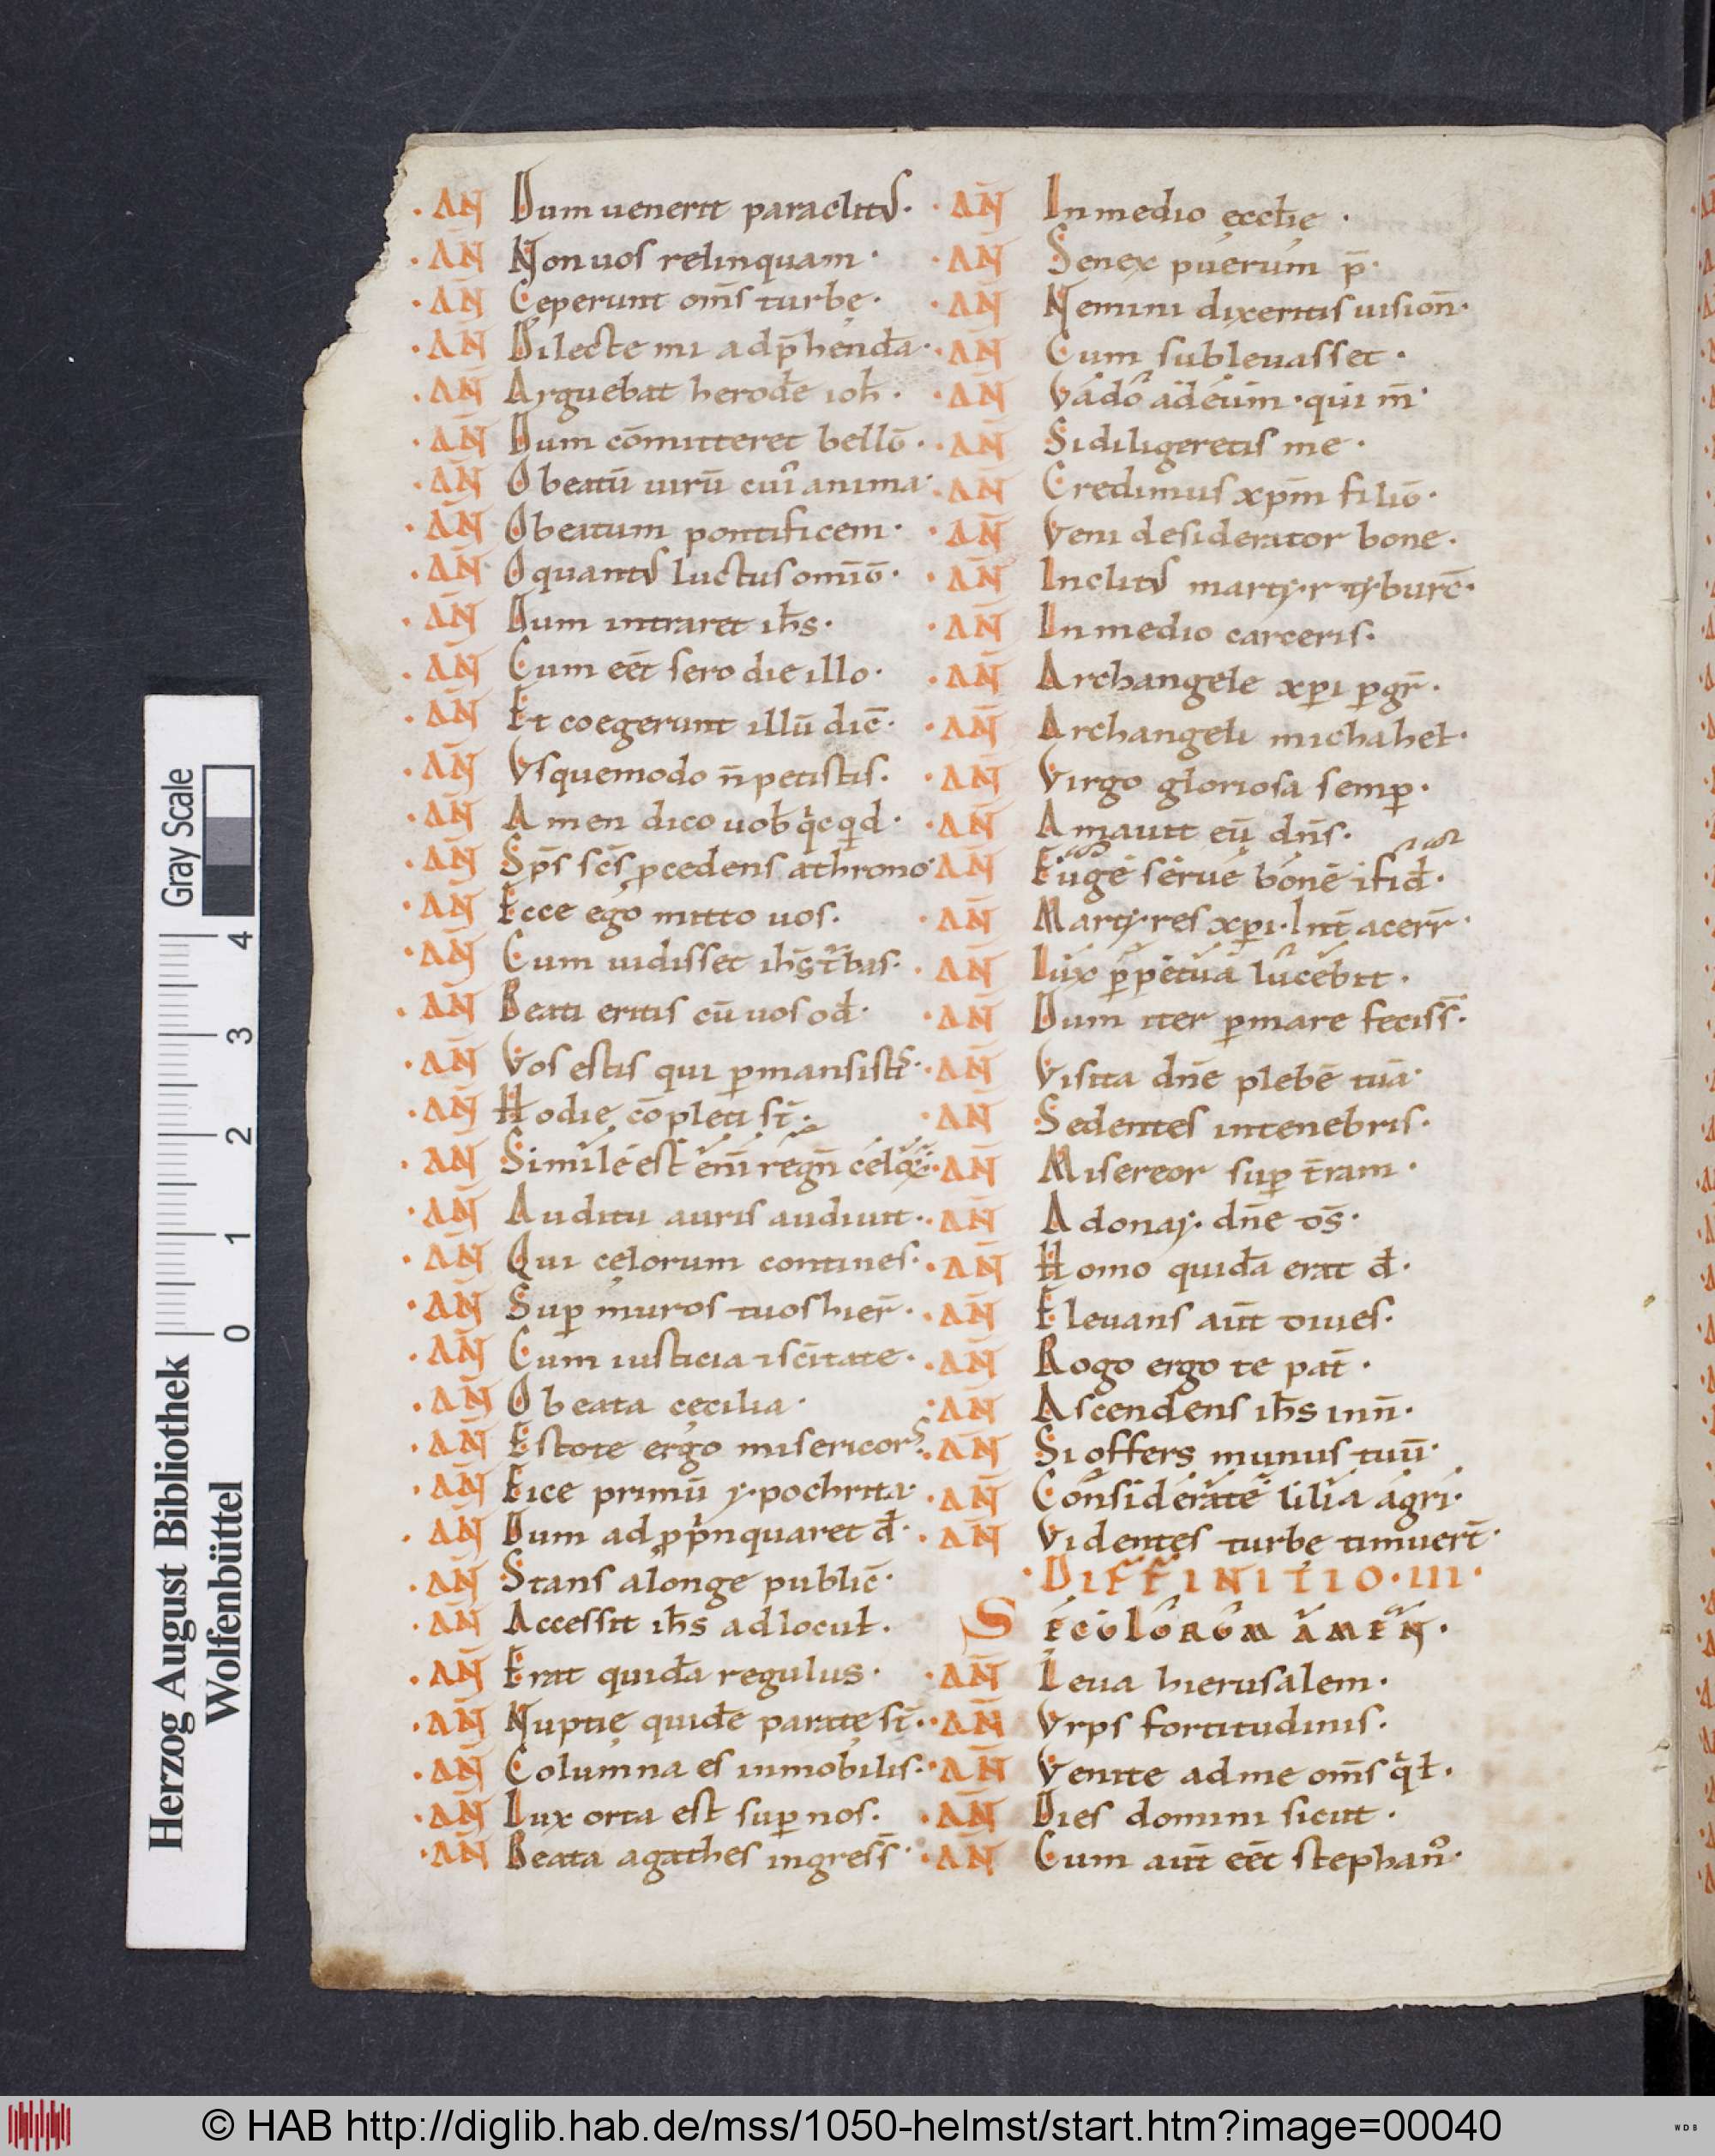 · AN̄ Dum uenerit paraclitus·
· AN̄ Non uos relinquam·
· AN̄ Ceperunt om̄s turbę·
· AN̄ Dilecte mi adp̄hendā·
· AN̄ Arguebat herodē ioh̄·
· AN̄ Dum cōmitteret bellū·
· AN̄ O beatū uirū cui anima·
· AN̄ O beatum pontificem·
· AN̄ O quantus luctus omiū·
· AN̄ Dum intraret ih̄s·
· AN̄ Cum eēt sero die illo·
· AN̄ Et coegerunt illū dic̄·
· AN̄ Vsquemodo n̄ petistis·
· AN̄ Amen dico uob̄ qͥcqͥd·
· AN̄ Sp̄s sc̄s ꝓcedens a throno·
· AN̄ Ecce ego mitto uos·
· AN̄ Cum uidisset ih̄s t̄bas·
· AN̄ Beati eritis cū uos od̄·
· AN̄ Vos estis qui ꝑmansistis·
· AN̄ Hodie cōpleti st̄·
· AN̄ Simile est eni regn̄ celoꝝ·
· AN̄ Auditu auris audiuit·
· AN̄ Qui cęlorum contines·
· AN̄ Suꝑ muros tuos hier̄·
· AN̄ Cum iusticia ⁊ sc̄itate·
· AN̄ O beata cecilia·
· AN̄ Estote ergo misericors·
· AN̄ Eice primū ypochrita·
· AN̄ Dum adꝓpinquaret d̄·
· AN̄ Stans a longe public̄·
· AN̄ Accessit ih̄s ad locul̄·
· AN̄ Erat quidā regulus·
· AN̄ Nuptię quidē paratę st̄·
· AN̄ Columna es inmobilis·
· AN̄ Lux orta est suꝑ nos·
· AN̄ Beata agathes ingress̄·
· AN̄ In medio ęccl̄ię·
· AN̄ Senex puerum p̄·
· AN̄ Nemini dixeritis uision̄·
· AN̄ Cum subleuasset·
· AN̄ Vado ad eum · qui m̄·
· AN̄ Si diligeretis me·
· AN̄ Credimus xp̄m filiū·
· AN̄ Veni desiderator bone·
· AN̄ Inclitus martyr tyburc̄·
· AN̄ In medio carceris·
· AN̄ Archangele xp̄i ꝑ gr̄·
· AN̄ Archangeli michahel·
· AN̄ Virgo gloriosa semꝑ·
· AN̄ Amauit eū dn̄s·
· AN̄ Euge serue bone ⁊ fid̄·
· AN̄ Martyres xp̄i· Int̄ acerr̄·
· AN̄ Lux ꝑpetua lucebit·
· AN̄ Dum iter ꝑ mare feciss̄·
· AN̄ Visita dn̄e plebē tuā·
· AN̄ Sedentes in tenebris·
· AN̄ Misereor suꝑ t̄ram·
· AN̄ Adonay· dn̄e ds̄·
· AN̄ Homo quidā erat d̄·
· AN̄ Eleuans aut̄ diues·
· AN̄ Rogo ergo te pat̄·
· AN̄ Ascendens ih̄s in n̄·
· AN̄ Si offers munus tuū·
· AN̄ Considerate lilia agri·
· AN̄ Videntes turbę timuer̄t·
· DIFFINITIO · III ·
SECULORUM AMEN·
· AN̄ Leua hierusalem·
· AN̄ Vrps fortitudinis·
· AN̄ Venite ad me om̄s qͥ l̄·
· AN̄ Dies domini sicut·
· AN̄ Cum aut̄ eēt stephan᷒·
Gray Scale
4
3
2
1
0
Herzog August Bibliothek
Wolfenbüttel
© HAB http://diglib.hab.de/mss/1050-helmst/start.htm?image=00040
WDB